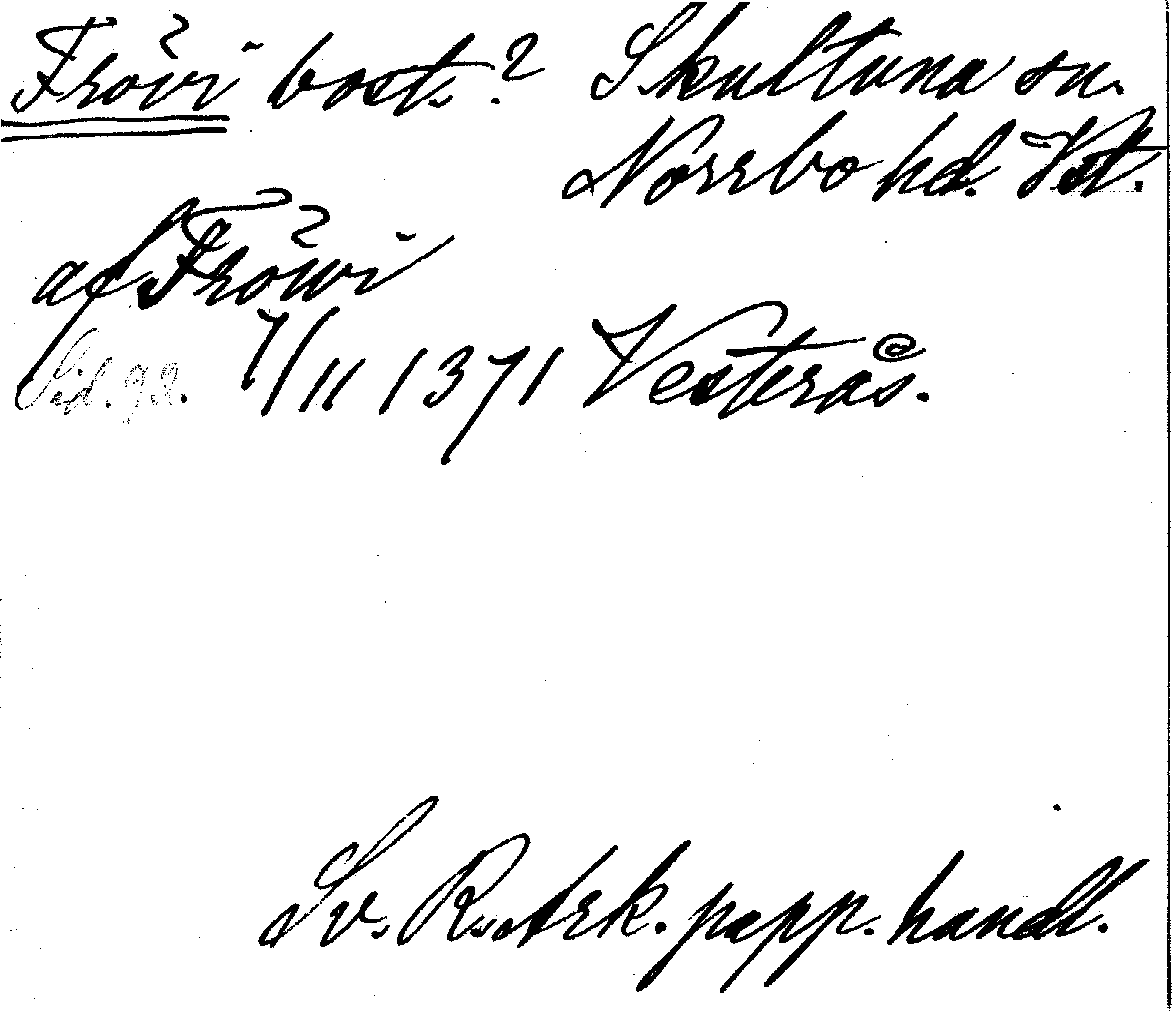 Frövi bost.? Skultuna sn.
Norrbo hd. Vst.
af Fröwi
Sid. 92. 7/11 1371 Vesterås.
Sv. R. Ark. papp. handl.